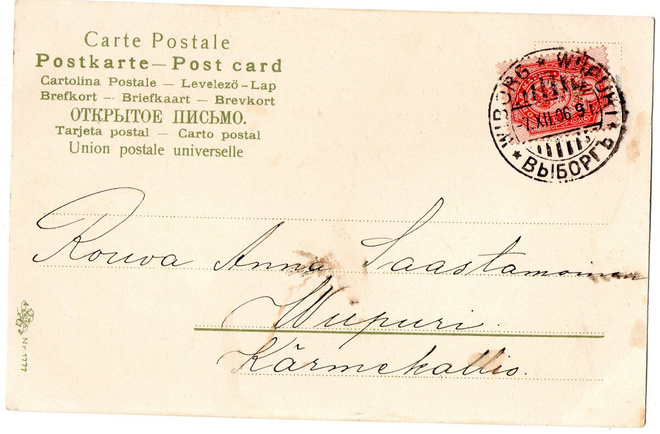 Carte Postale
Postkarte — Post card
Cartolina Postale — Levelező-Lap
Brefkort — Briefkaart — Brevkort
ОТКРЫТОЕ ПИСЬМО.
Tarjeta postal — Carto postal
Union postale universelle
WIBORG * WIIPURI *
XII.06. 9
ВЫБОРГЪ *
Rouva Anna Saastamoinen
Wiipuri
Kärmekallio.
Nr. 1777